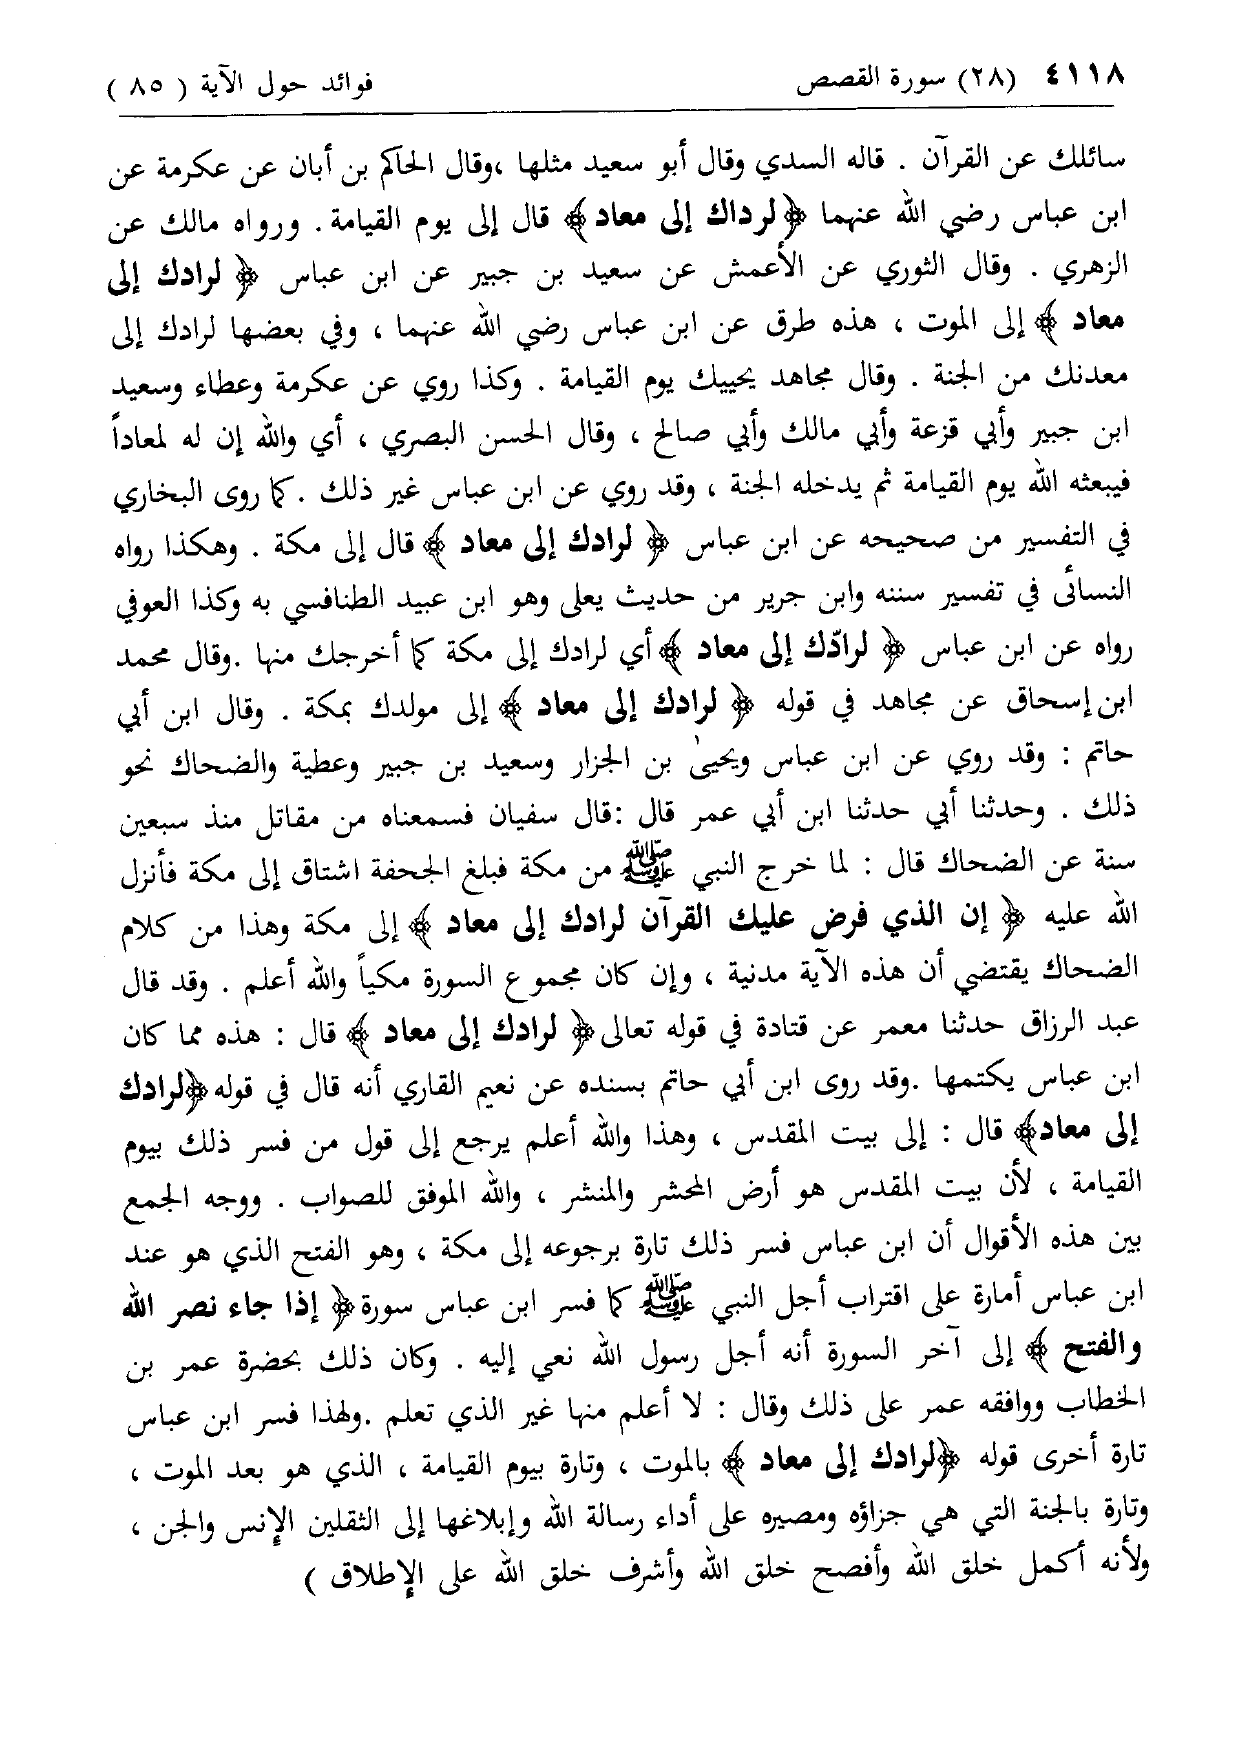 ٤١١٨ (٢٨) سورة القصص فوائد حول الآية ( ٨٥ )
سائلك عن القرآن . قاله السدي وقال أبو سعيد مثلها ،وقال الحاكم بن أبان عن عكرمة عن
ابن عباس رضي الله عنهما ﴿لرداك إلى معاد﴾ قال إلى يوم القيامة . ورواه مالك عن
الزهري . وقال الثوري عن الأعمش عن سعيد بن جبير عن ابن عباس ﴿ لرادك إلى
معاد ﴾ إلى الموت ، هذه طرق عن ابن عباس رضي الله عنهما ، وفي بعضها لرادك إلى
معدنك من الجنة . وقال مجاهد يحييك يوم القيامة . وكذا روي عن عكرمة وعطاء وسعيد
ابن جبير وأبي قزعة وأبي مالك وأبي صالح ، وقال الحسن البصري ، أي والله إن له لمعاداً
فيبعثه الله يوم القيامة ثم يدخله الجنة ، وقد روي عن ابن عباس غير ذلك .كما روى البخاري
في التفسير من صحيحه عن ابن عباس ﴿ لرادك إلى معاد ﴾ قال إلى مكة . وهكذا رواه
النسائى في تفسير سننه وابن جرير من حديث يعلى وهو ابن عبيد الطنافسي به وكذا العوفي
رواه عن ابن عباس ﴿ لرادّك إلى معاد ﴾ أي لرادك إلى مكة كما أخرجك منها .وقال محمد
ابن إسحاق عن مجاهد في قوله ﴿ لرادك إلى معاد ﴾ إلى مولدك بمكة . وقال ابن أبي
حاتم : وقد روي عن ابن عباس ويحيىٰ بن الجزار وسعيد بن جبير وعطية والضحاك نحو
ذلك . وحدثنا أبي حدثنا ابن أبي عمر قال :قال سفيان فسمعناه من مقاتل منذ سبعين
سنة عن الضحاك قال : لما خرج النبي ﷺ من مكة فبلغ الجحفة اشتاق إلى مكة فأنزل
الله عليه ﴿ إن الذي فرض عليك القرآن لرادك إلى معاد ﴾ إلى مكة وهذا من كلام
الضحاك يقتضي أن هذه الآية مدنية ، وإن كان مجموع السورة مكياً والله أعلم . وقد قال
عبد الرزاق حدثنا معمر عن قتادة في قوله تعالى﴿ لرادك إلى معاد ﴾ قال : هذه مما كان
ابن عباس يكتمها .وقد روى ابن أبي حاتم بسنده عن نعيم القاري أنه قال في قوله﴿لرادك
إلى معاد﴾ قال : إلى بيت المقدس ، وهذا والله أعلم يرجع إلى قول من فسر ذلك بيوم
القيامة ، لأن بيت المقدس هو أرض المحشر والمنشر ، والله الموفق للصواب . ووجه الجمع
بين هذه الأقوال أن ابن عباس فسر ذلك تارة برجوعه إلى مكة ، وهو الفتح الذي هو عند
ابن عباس أمارة على اقتراب أجل النبي ﷺ كما فسر ابن عباس سورة﴿ إذا جاء نصر الله
والفتح ﴾ إلى آخر السورة أنه أجل رسول الله نعي إليه . وكان ذلك بحضرة عمر بن
الخطاب ووافقه عمر على ذلك وقال : لا أعلم منها غير الذي تعلم .ولهذا فسر ابن عباس
تارة أخرى قوله ﴿لرادك إلى معاد ﴾ بالموت ، وتارة بيوم القيامة ، الذي هو بعد الموت ،
وتارة بالجنة التي هي جزاؤه ومصيره على أداء رسالة الله وإبلاغها إلى الثقلين الإنس والجن ،
ولأنه أكمل خلق الله وأفصح خلق الله وأشرف خلق الله على الإطلاق )